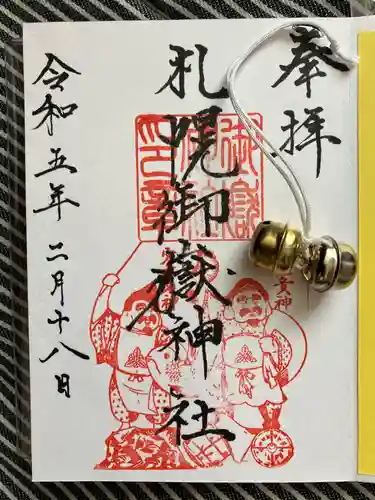 奉拝
札幌御嶽神社
令和五年二月十八日